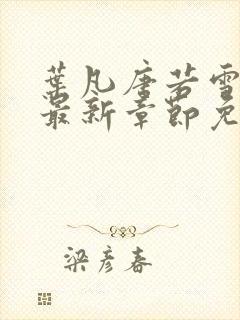 葉凡唐若雪
最新章節免
梁彦春